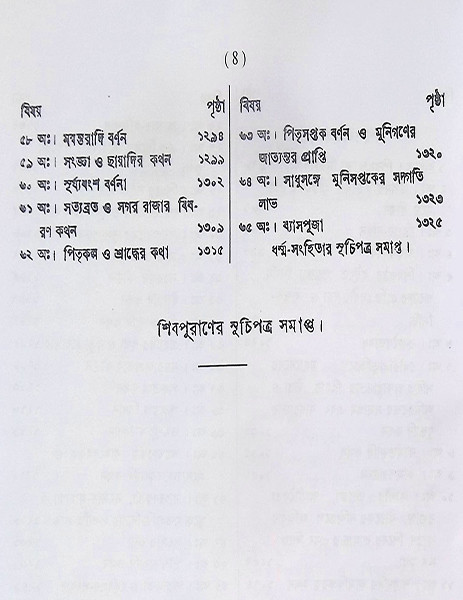 (8)
বিষয় পৃষ্ঠা
৫৮ অঃ। মন্বন্তরাদি বর্ণন ১২৯৪
৫৯ অঃ। সংজ্ঞা ও ছায়াদির কথন ১২৯৯
৬০ অঃ। সূর্য্যবংশ বর্ণনা ১৩০২
৬১ অঃ। সত্যব্রত ও সগর রাজার বিব-
রণ কথন ১৩০৯
৬২ অঃ। পিতৃকল্প ও শ্রাদ্ধের কথা ১৩১৫
বিষয় পৃষ্ঠা
৬৩ অঃ। পিতৃসপ্তক বর্ণন ও মুনিগণের
জাত্যন্তর প্রাপ্তি ১৩২০
৬৪ অঃ। সাধুসঙ্গে মুনিসপ্তকের সদ্গতি
লাভ ১৩২৩
৬৫ অঃ। ব্যাসপূজা ১৩২৫
ধর্ম্ম-সংহিতার সূচিপত্র সমাপ্ত।
শিবপুরাণের সূচিপত্র সমাপ্ত।